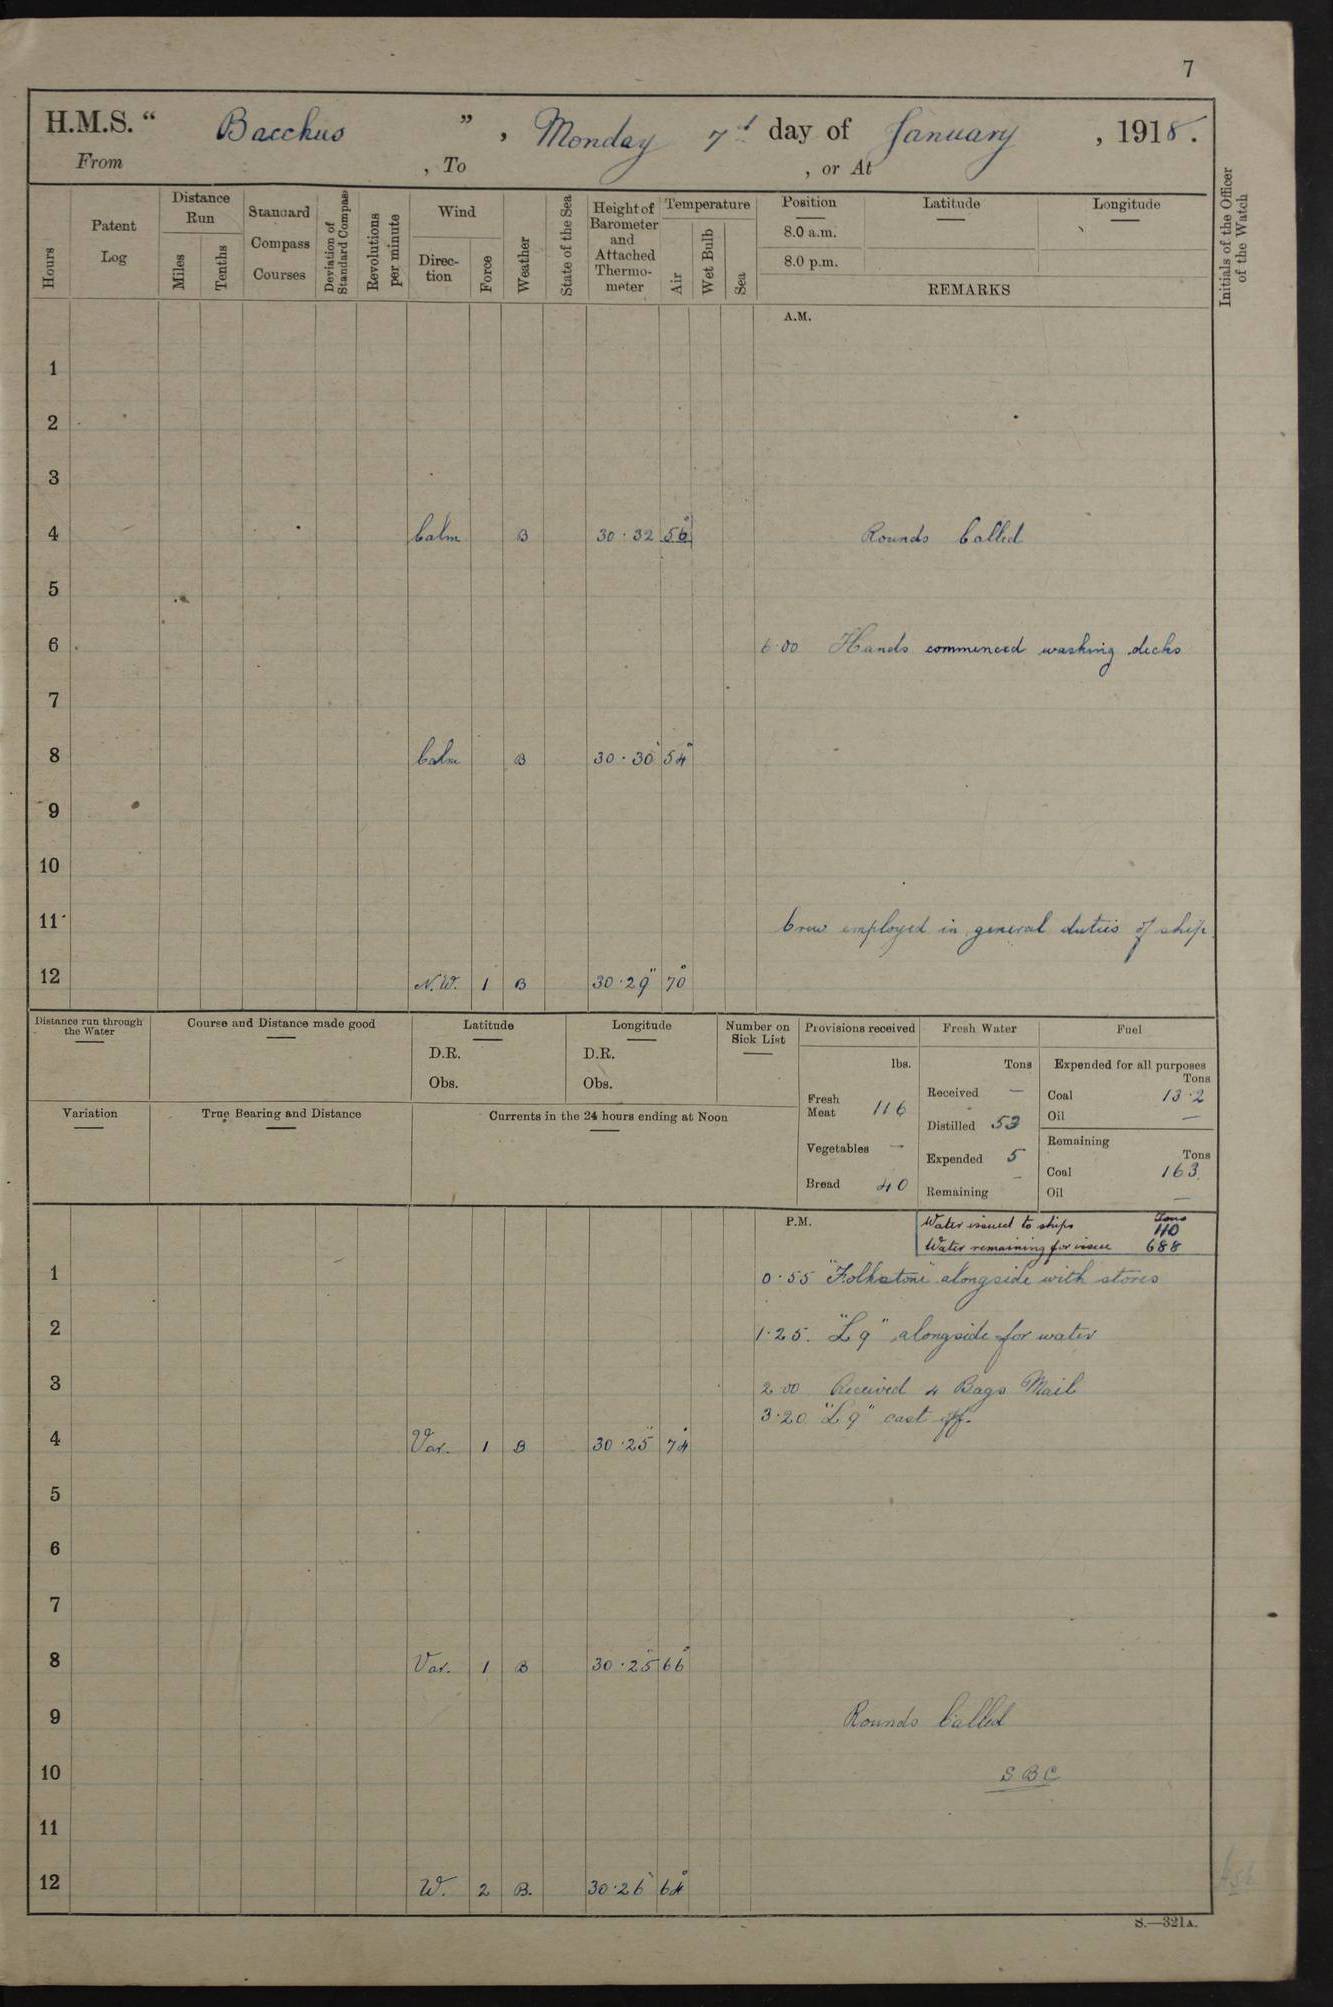 7
H.M.S. “ Bacchus ” , Monday 7th day of January , 1918.
From , To , or At
Hours
Patent Log
Distance Run
Miles
Tenths
Standard Compass Courses
Deviation of Standard Compass
Revolutions per minute
Wind
Direction
Force
Weather
State of the Sea
Height of Barometer and Attached Thermometer
Temperature
Air
Wet Bulb
Sea
Position Latitude Longitude
8.0 a.m.
8.0 p.m.
REMARKS
Initials of the Officer of the Watch
A.M.
1
2
3
4 Calm B 30·32 56° Rounds Called
5
6 6·00 Hands commenced washing decks
7
8 Calm B 30·30 54°
9
10
11 Crew employed in general duties of ship
12 N.W. 1 B 30·29 70°
Distance run through the Water
Course and Distance made good
Latitude
D.R.
Obs.
Longitude
D.R.
Obs.
Number on Sick List
Variation
True Bearing and Distance
Currents in the 24 hours ending at Noon
Provisions received
lbs.
Fresh Meat 116
Vegetables —
Bread 40
Fresh Water
Tons
Received —
Distilled 53
Expended 5
Remaining —
Fuel
Expended for all purposes
Tons
Coal 13·2
Oil —
Remaining
Tons
Coal 163
Oil —
P.M.
Water issued to ships Tons 110
Water remaining for issue 688
1 0·55 "Folkstone" alongside with stores
2 1·25. "L9" alongside for water
3 2·00 Received 4 Bags Mail
3·20 "L9" cast off.
4 Var. 1 B 30·25 74°
5
6
7
8 Var. 1 B 30·25 66°
9 Rounds Called
10 S B C
11
12 W. 2 B. 30·26 64°
S.—321A.